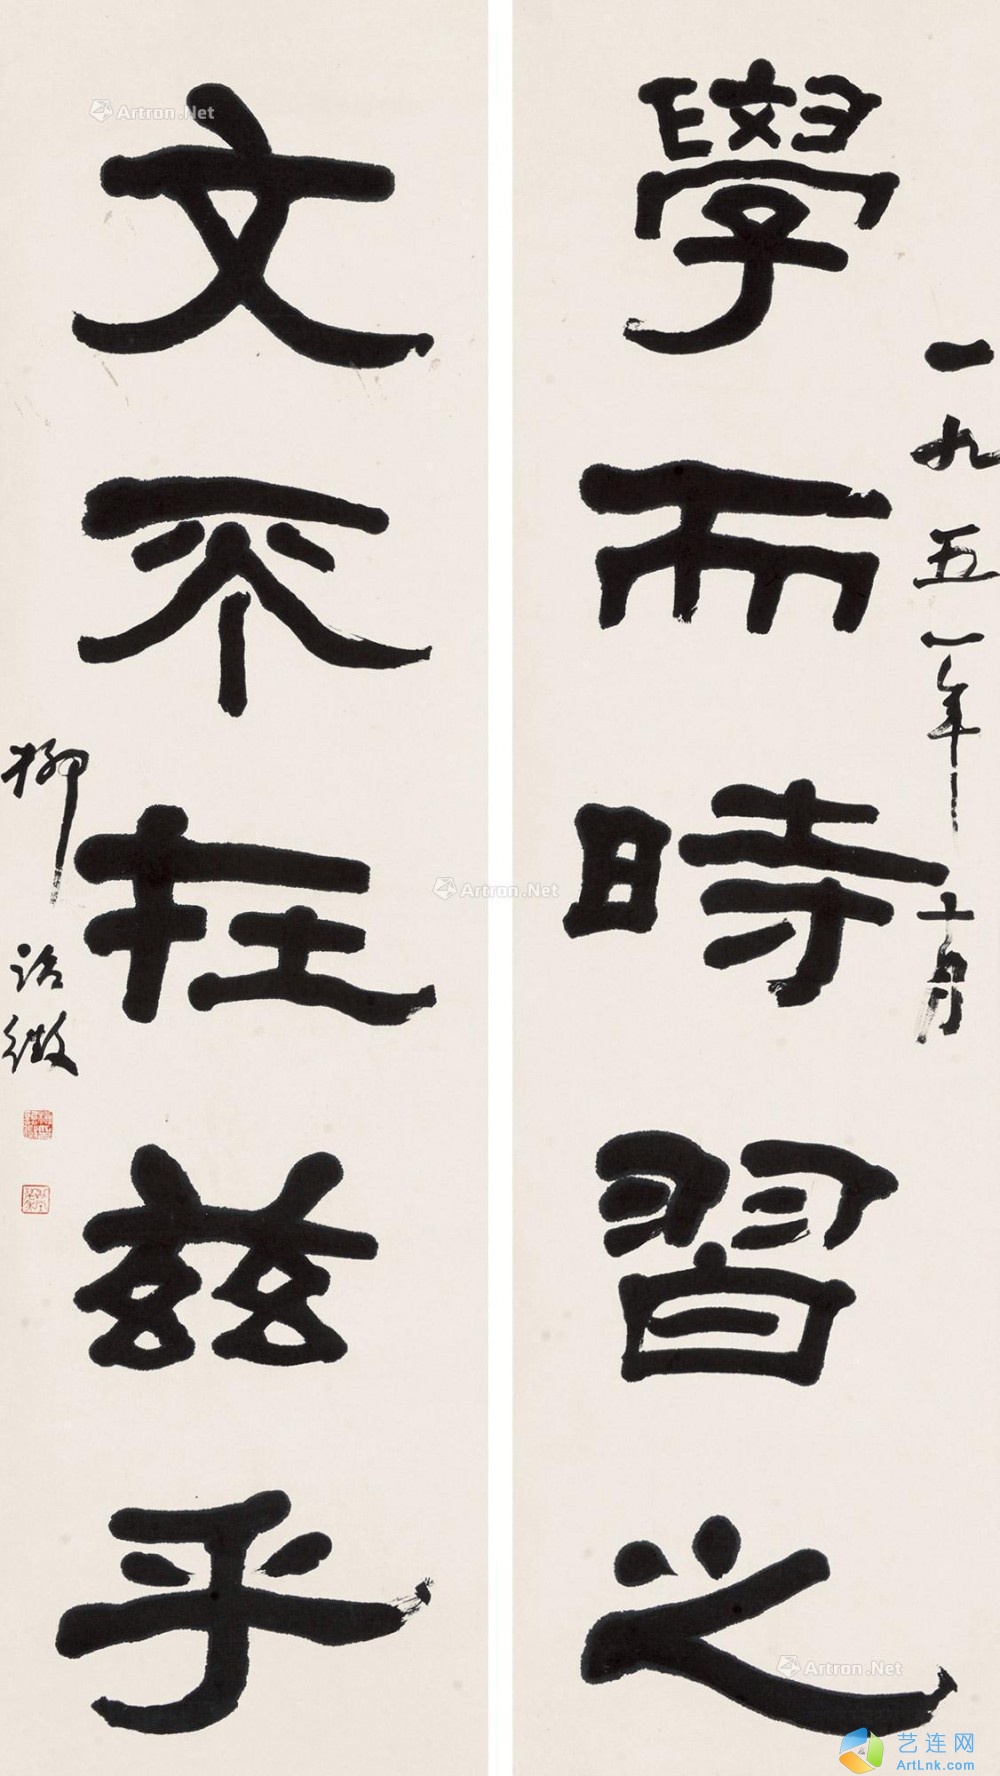 學而時習之
一九五一年十月
文不在茲乎
柳詒徵
Artron.Net
Artron.Net
Artron.Net
艺连网
ArtLnk.com